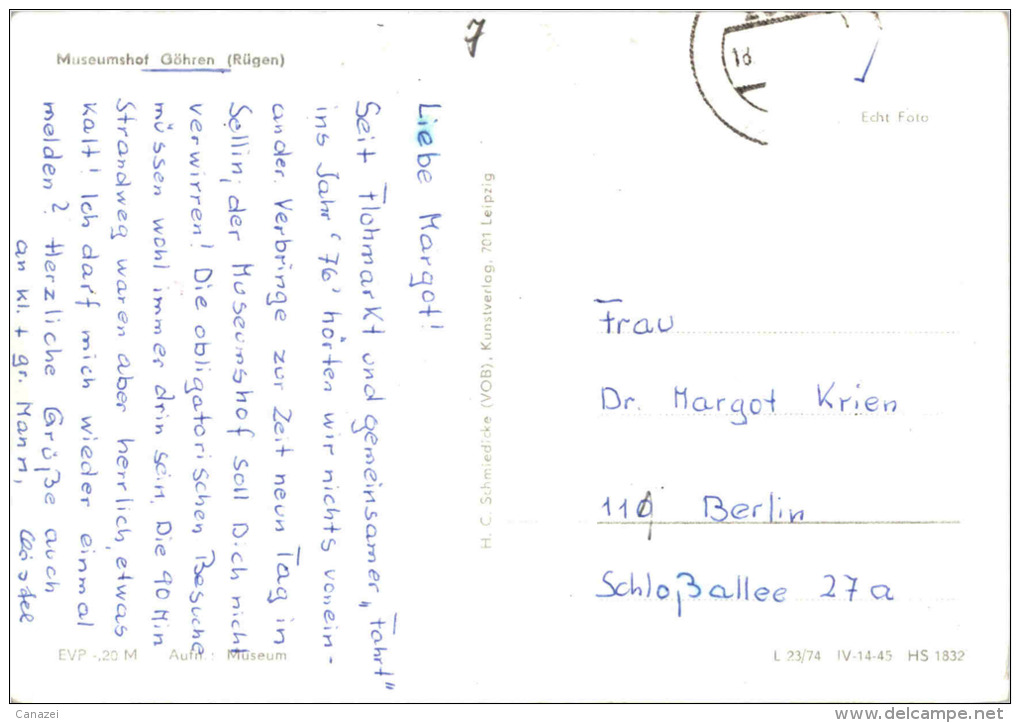 Museumshof Göhren (Rügen)
7
Echt Foto
Liebe Margot!
Seit Flohmarkt und gemeinsamer "Fahrt"
ins Jahr '76' hörten wir nichts vonein-
ander. Verbringe zur Zeit neun Tag in
Sellin; der Museumshof soll Dich nicht
verwirren! Die obligatorischen Besuche
müssen wohl immer drin sein. Die 90 Min
Strandweg waren aber herrlich, etwas
kalt! Ich darf mich wieder einmal
melden? Herzliche Grüße auch
an kl. + gr. Mann,
H. C. Schmiedicke (VOB), Kunstverlag, 701 Leipzig
Frau
Dr. Margot Krien
110 Berlin
Schloßallee 27a
EVP -,20 M Aufn.: Museum
L 23/74 IV-14-45 HS 1832
Canazei
www.delcampe.net